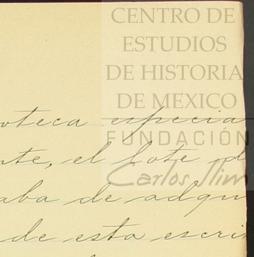 CENTRO DE
ESTUDIOS
DE HISTORIA
DE MEXICO
FUNDACIÓN
Carlos Slim
oteca especia
nte, el lote d
aba de adqu
de esta escri